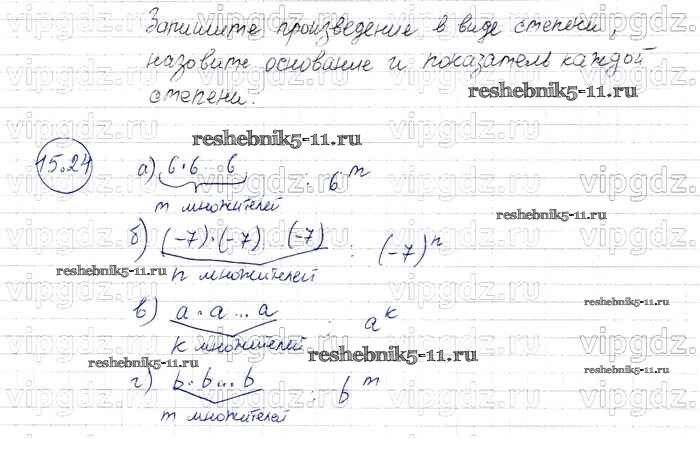 Запишите произведение в виде степени,
назовите основание и показатель каждой
степени:
reshebnik5-11.ru
reshebnik5-11.ru
15.24 а) 6·6...6 : 6^m
m множителей
reshebnik5-11.ru
б) (-7)·(-7) (-7) : (-7)^n
reshebnik5-11.ru
n множителей
в) a·a...a : a^k
reshebnik5-11.ru
k множителей
reshebnik5-11.ru
reshebnik5-11.ru
г) b·b...b : b^m
reshebnik5-11.ru
m множителей
vipgdz.ru vipgdz.ru vipgdz.ru vipgdz.ru